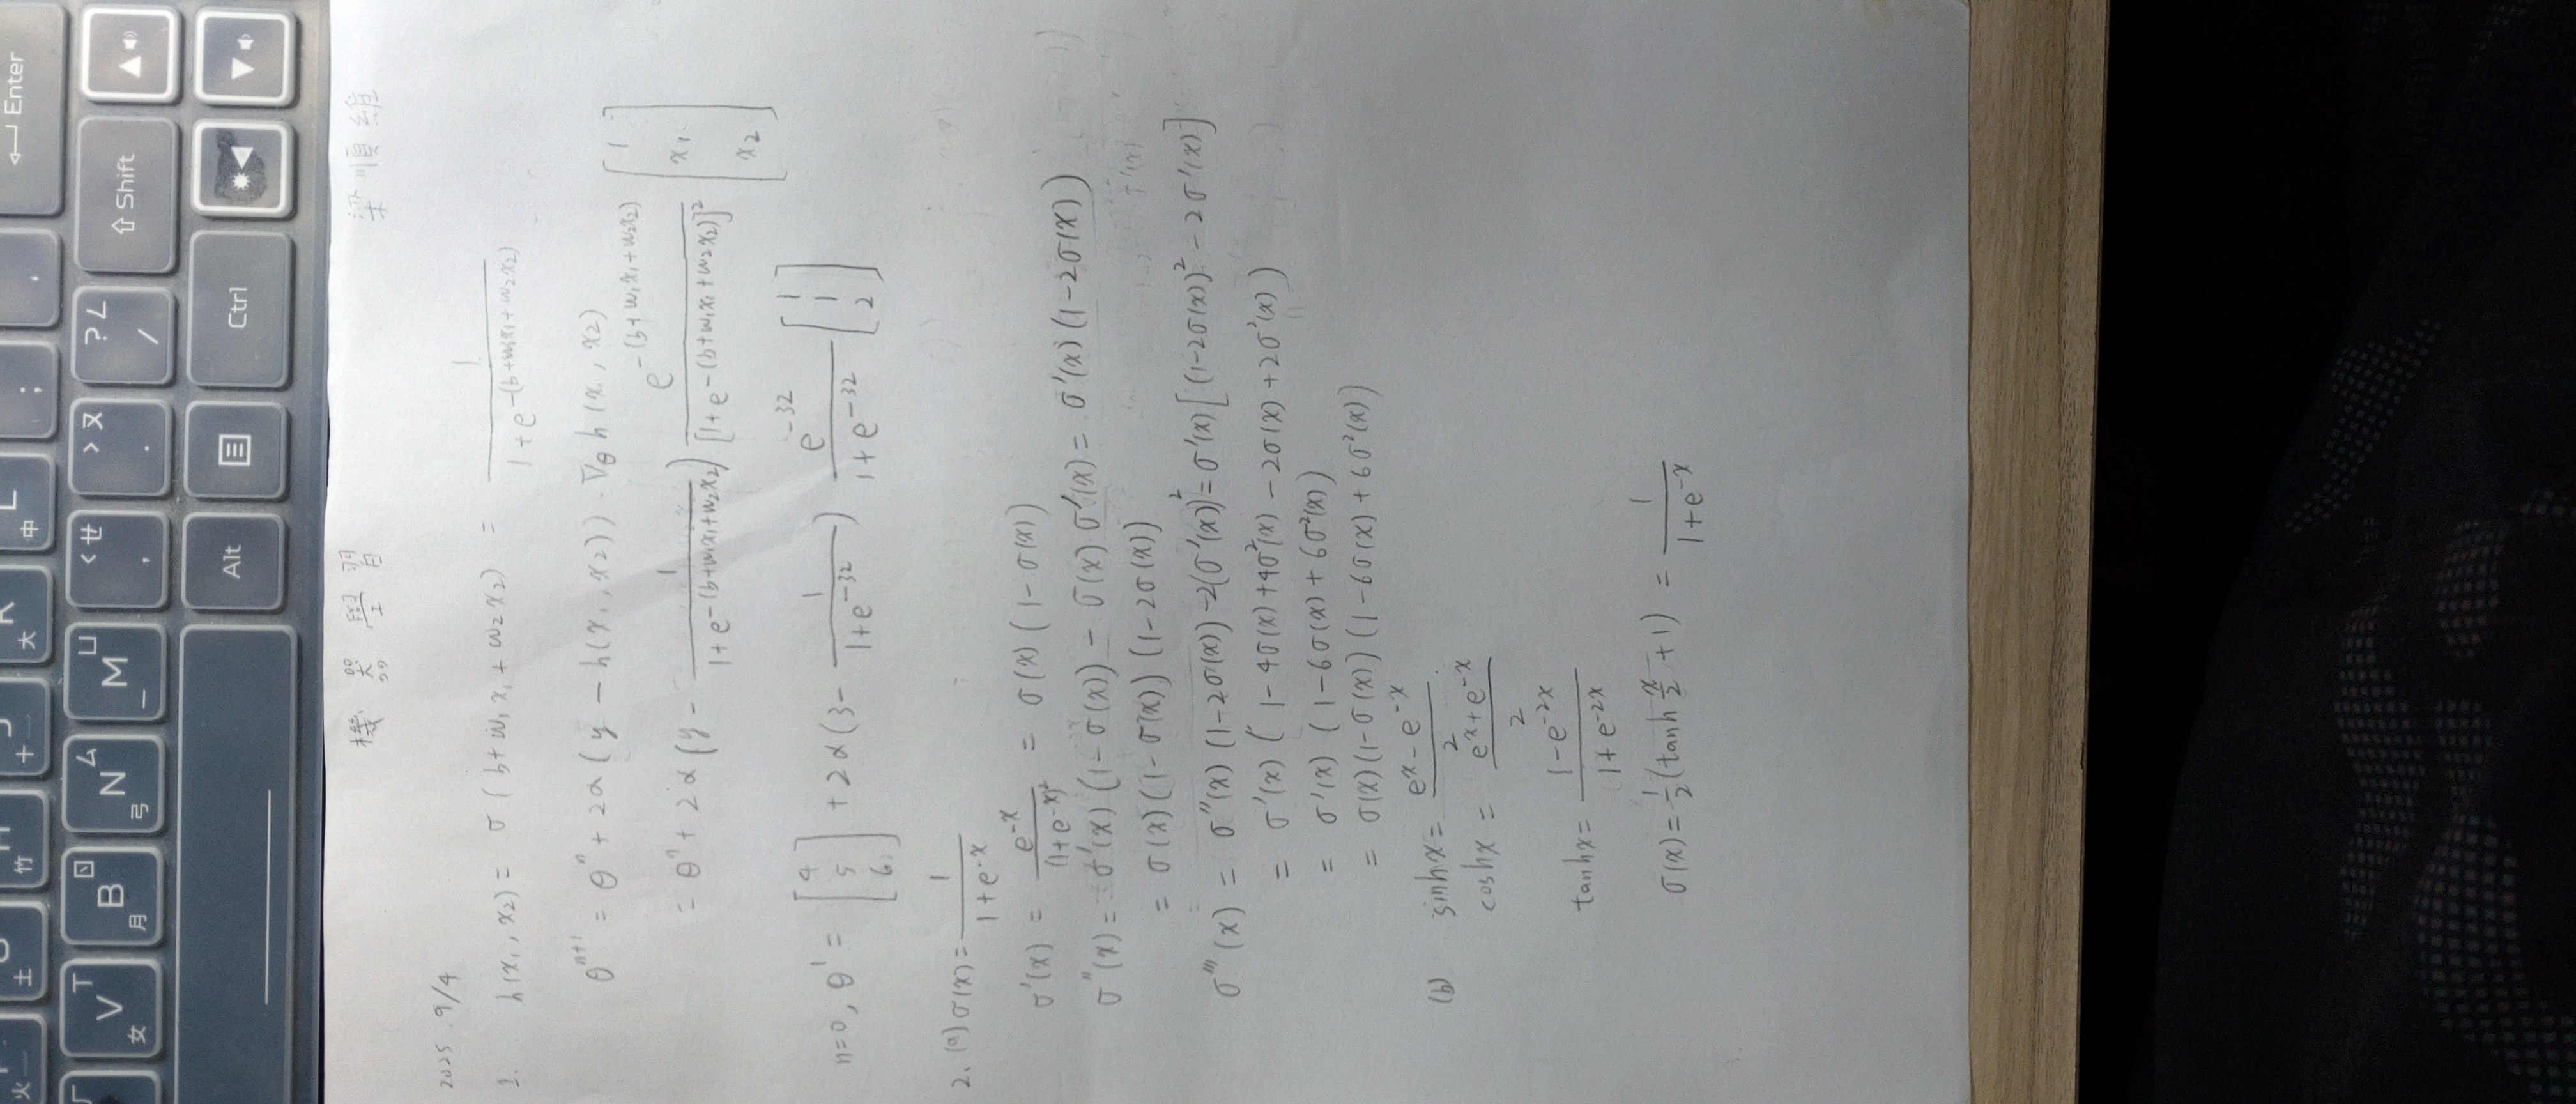 火 土 竹 十 大 中 ; , Enter
V ㄒ 女 B ㄖ 月 N ㄙ 弓 M ㄩ 一 < ㄝ , > ㄡ . ? ㄥ / ⇧ Shift ▲
Alt Ctrl ◀ ▼
機器學習 梁順維
2025.9/4
1. h(x₁, x₂) = σ(b+w₁x₁+w₂x₂) = 1/(1+e^-(b+w₁x₁+w₂x₂))
θⁿ⁺¹ = θⁿ + 2α(y - h(x₁, x₂)) · ∇θ h(x₁, x₂)
= θⁿ + 2α(y - 1/(1+e^-(b+w₁x₁+w₂x₂))) e^-(b+w₁x₁+w₂x₂)/[1+e^-(b+w₁x₁+w₂x₂)]² [1 x₁ x₂]
n=0, θ¹ = [4 5 6] + 2α(3 - 1/(1+e^-32)) e^-32/(1+e^-32) [1 1 2]
2. (a) σ(x) = 1/(1+e^-x)
σ'(x) = e^-x/(1+e^-x)² = σ(x)(1-σ(x))
σ''(x) = σ'(x)(1-σ(x)) - σ(x)σ'(x) = σ'(x)(1-2σ(x))
= σ(x)(1-σ(x))(1-2σ(x))
σ'''(x) = σ''(x)(1-2σ(x)) - 2(σ'(x))² = σ'(x)[(1-2σ(x))² - 2σ'(x)]
= σ'(x)(1-4σ(x)+4σ²(x) - 2σ(x)+2σ²(x))
= σ'(x)(1-6σ(x)+6σ²(x))
= σ(x)(1-σ(x))(1-6σ(x)+6σ²(x))
(b) sinhx = (e^x - e^-x)/2
coshx = (e^x + e^-x)/2
tanhx = (1-e^-2x)/(1+e^-2x)
σ(x) = 1/2(tanh x/2 + 1) = 1/(1+e^-x)